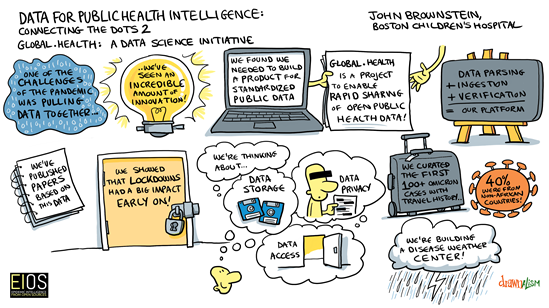 DATA FOR PUBLIC HEALTH INTELLIGENCE:
CONNECTING THE DOTS 2
GLOBAL.HEALTH: A DATA SCIENCE INITIATIVE
JOHN BROWNSTEIN,
BOSTON CHILDREN'S HOSPITAL
ONE OF THE
CHALLENGES
OF THE PANDEMIC
WAS PULLING
DATA TOGETHER...
...WE'VE
SEEN AN
INCREDIBLE
AMOUNT OF
INNOVATION!
WE FOUND WE
NEEDED TO BUILD
A PRODUCT FOR
STANDARDIZED
PUBLIC DATA
GLOBAL.HEALTH
IS A PROJECT
TO ENABLE
RAPID SHARING
OF OPEN PUBLIC
HEALTH DATA!
DATA PARSING
+ INGESTION
+ VERIFICATION
= OUR PLATFORM
WE'VE
PUBLISHED
PAPERS
BASED ON
THIS DATA
WE SHOWED
THAT LOCKDOWNS
HAD A BIG IMPACT
EARLY ON!
WE'RE THINKING
ABOUT...
DATA
STORAGE
DATA
PRIVACY
DATA
ACCESS
WE CURATED
THE FIRST
100+ OMICRON
CASES WITH
TRAVEL HISTORY...
40%
WERE FROM
NON-AFRICAN
COUNTRIES!
WE'RE BUILDING
A DISEASE WEATHER
CENTER!
EIOS
drawnalism